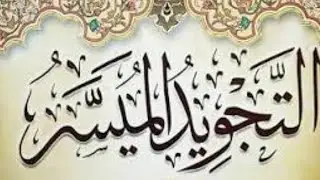 التَّجْوِيدُ الْمُيَسَّرُ